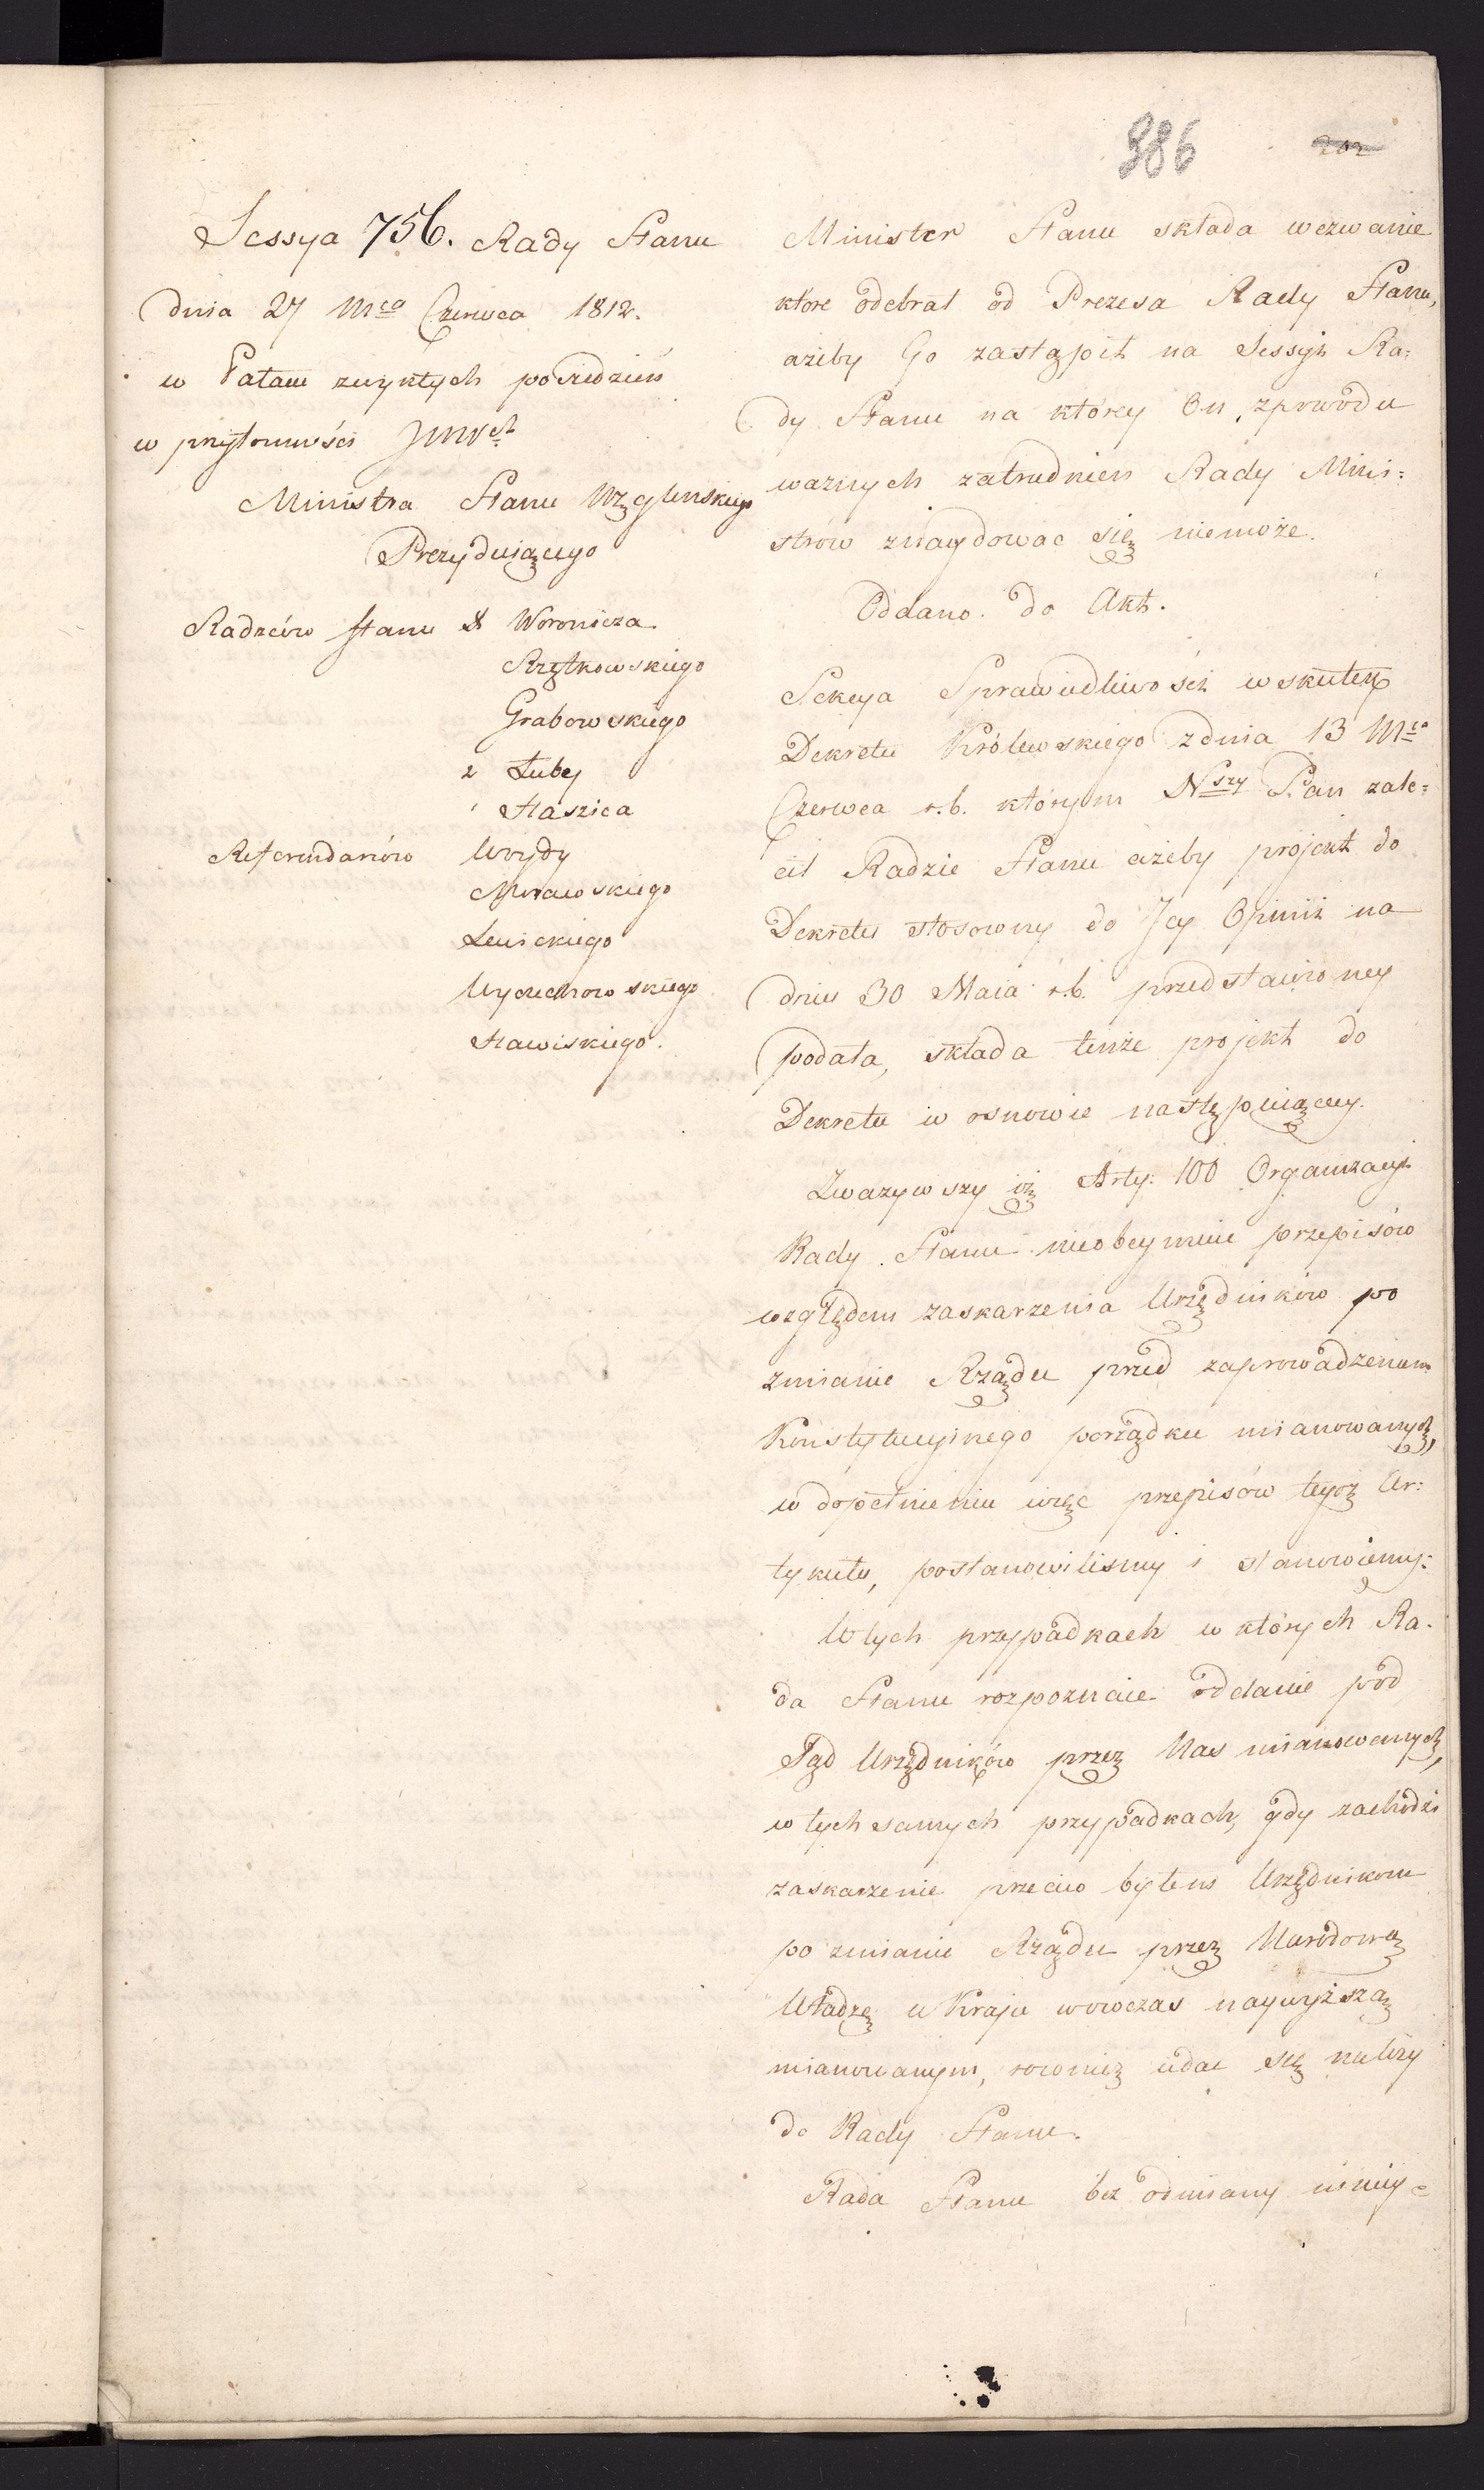 986
202
Sessya 756. Rady Stanu
dnia 27 Mca Czerwca 1812.
w Pałacu zwykłych posiedzień
w przytomności JmPch
Ministra Stanu Węglenskiego
Prezyduiącego
Radzców Stanu X Woronicza
Rzętkowskiego
Grabowskiego
2 Łubey
1 Staszica
Referendarzów Woydy
Morawskiego
Lewickiego
Wyczechowskiego
Stawiskiego.
Minister Stanu składa wezwanie
które odebrał od Prezesa Rady Stanu,
ażeby Go zastąpił na Sessyi Ra:
dy Stanu na którey On, zpowodu
ważnych zatrudnien Rady Mini:
strów znaydować się niemoże.
Oddano do Akt.
Sekcya Sprawiedliwości wskutek
Dekretu Królewskiego zdnia 13 Mca
Czerwca r.b. którym Nszy Pan zale:
cił Radzie Stanu ażeby projekt do
Dekretu stosowny do Jey Opinii na
dniu 30 Maia r.b. przedstawioney
podała, składa tenże projekt do
Dekretu w osnowie następuiącey.
Zważywszy iż Arty: 100 Organizacyi
Rady Stanu nieobeymuie przepisów
względem zaskarzenia Urzędników po
zmianie Rządu przed zaprowadzeniem
Konstytucyinego porządku mianowanych,
w dopełnieniu więc przepisów tegoż Ar:
tykułu, postanowilismy i stanowiemy:
W tych przypadkach w których Ra:
da Stanu rozpoznaie oddanie pod
Sąd Urzędników przez Nas mianowanych,
w tych samych przypadkach, gdy zachodzi
zaskarzenie przeciw byłem Urzędnikom
po zmianie Rządu przez Narodową
Władzę w Kraju wowczas naywyższą
mianowanym, rownież udać się należy
do Rady Stanu.
Rada Stanu bez odmiany ninie: